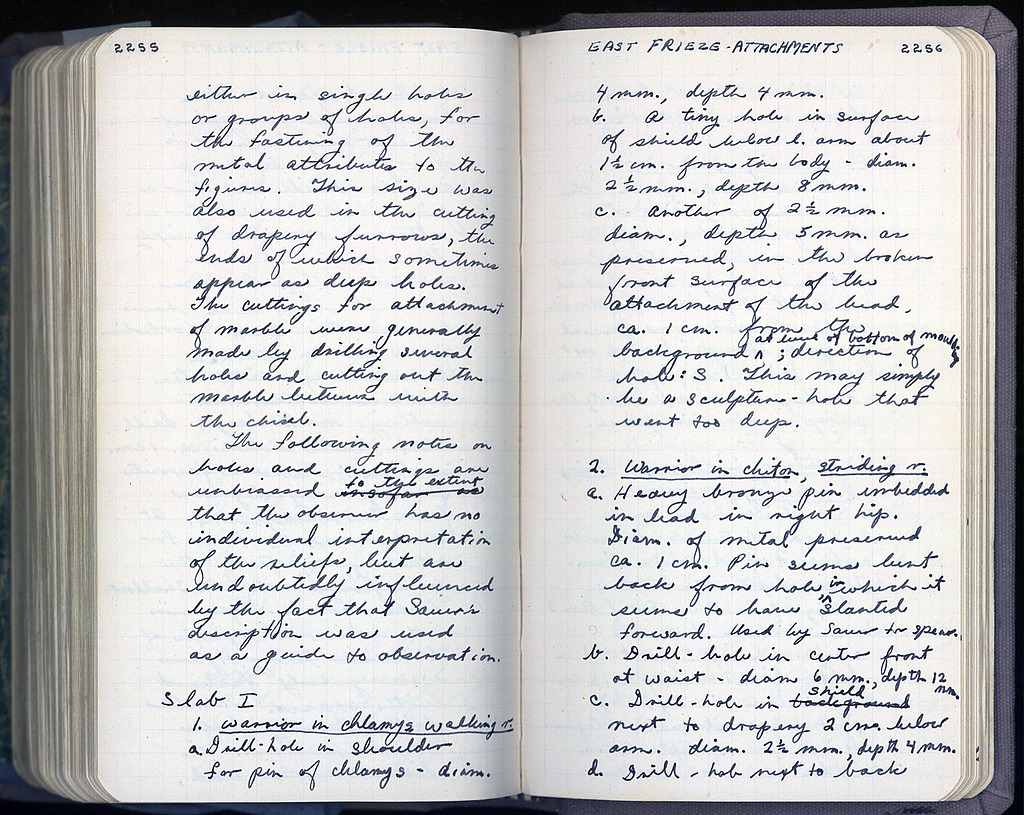 2255
either in single holes
or groups of holes, for
the fastening of the
metal attributes to the
figures. This size was
also used in the cutting
of drapery furrows, the
ends of which sometimes
appear as deep holes.
The cuttings for attachment
of marble were generally
made by drilling several
holes and cutting out the
marble between with
the chisel.
The following notes on
holes and cuttings are
unbiassed insofar as to the extent
that the observer has no
individual interpretation
of the reliefs, but are
undoubtedly influenced
by the fact that Sauer's
description was used
as a guide to observation.
Slab I
1. Warrior in chlamys walking r.
a. Drill-hole in shoulder
for pin of chlamys - diam.
EAST FRIEZE - ATTACHMENTS 2256
4 mm., depth 4 mm.
b. A tiny hole in surface
of shield below l. arm about
1½ cm. from the body - diam.
2½ mm., depth 8 mm.
c. Another of 2½ mm.
diam., depth 5 mm. as
preserved, in the broken
front surface of the
attachment of the head,
ca. 1 cm. from the
background at level of bottom of moulding; direction of
hole: S. This may simply
be a sculpture-hole that
went too deep.
2. Warrior in chiton, striding r.
a. Heavy bronze pin imbedded
in lead in right hip.
Diam. of metal preserved
ca. 1 cm. Pin seems bent
back from hole in which it
seems to have slanted
forward. Used by Sauer for spear.
b. Drill-hole in center front
at waist - diam 6 mm., depth 12 mm.
c. Drill-hole in background shield
next to drapery 2 cm. below
arm. diam. 2½ mm., depth 4 mm.
d. Drill-hole next to back